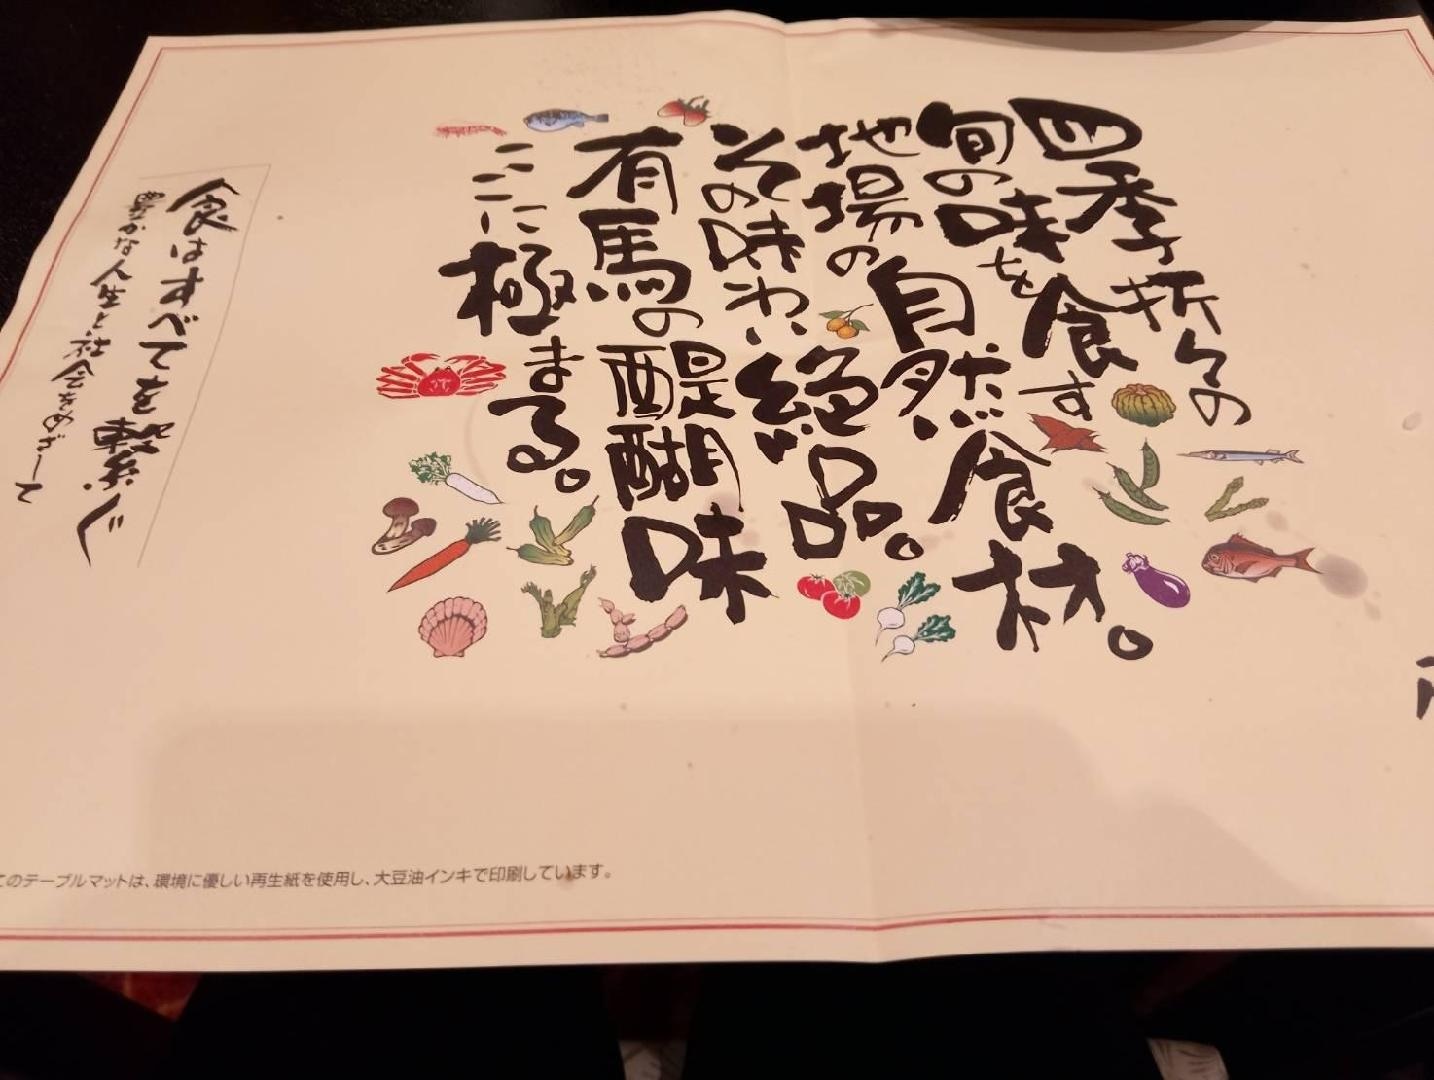 四季折々の
旬の味を食す
地場の自然食材。
その味わい絶品。
有馬の醍醐味
ここに極まる。
食はすべてを繋ぐ
豊かな人生と社会をめざして
このテーブルマットは、環境に優しい再生紙を使用し、大豆油インキで印刷しています。